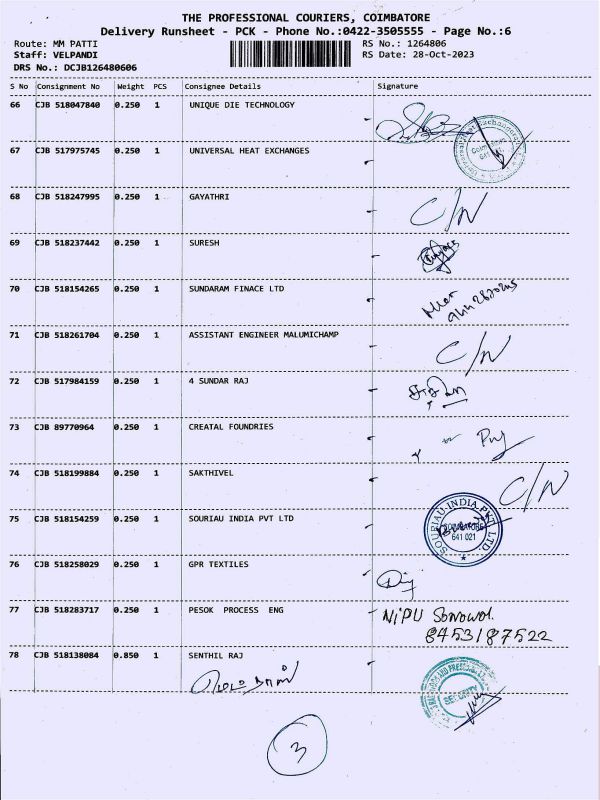 THE PROFESSIONAL COURIERS, COIMBATORE
Delivery Runsheet - PCK - Phone No.:0422-3505555 - Page No.:6
Route: MM PATTI RS No.: 1264806
Staff: VELPANDI RS Date: 28-Oct-2023
DRS No.: DCJB126480606
S No Consignment No Weight PCS Consignee Details Signature
66 CJB 518047840 0.250 1 UNIQUE DIE TECHNOLOGY
67 CJB 517975745 0.250 1 UNIVERSAL HEAT EXCHANGES
68 CJB 518247995 0.250 1 GAYATHRI C/N
69 CJB 518237442 0.250 1 SURESH
70 CJB 518154265 0.250 1 SUNDARAM FINACE LTD
71 CJB 518261704 0.250 1 ASSISTANT ENGINEER MALUMICHAMP C/N
72 CJB 517984159 0.250 1 4 SUNDAR RAJ
73 CJB 89770964 0.250 1 CREATAL FOUNDRIES
74 CJB 518199884 0.250 1 SAKTHIVEL C/N
75 CJB 518154259 0.250 1 SOURIAU INDIA PVT LTD
SOURIAU INDIA PVT. LTD.
COIMBATORE
641 021
76 CJB 518258029 0.250 1 GPR TEXTILES
77 CJB 518283717 0.250 1 PESOK PROCESS ENG NIPU Sonowol.
8453187522
78 CJB 518138084 0.850 1 SENTHIL RAJ
SECURITY
3